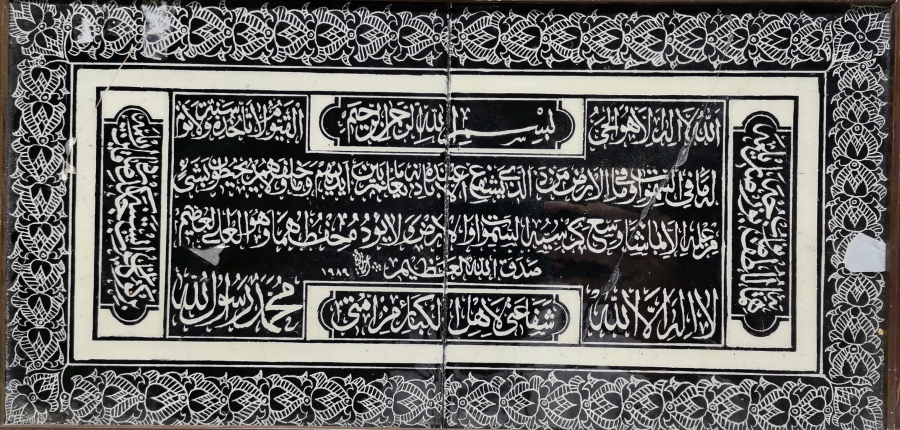 بسم الله الرحمن الرحيم
الله لا إله إلا هو الحي
القيوم لا تأخذه سنة ولا نوم
له ما في السموات وما في الأرض من ذا الذي يشفع عنده إلا بإذنه يعلم ما بين أيديهم وما خلفهم ولا يحيطون بشيء
من علمه إلا بما شاء وسع كرسيه السموات والأرض ولا يؤده حفظهما وهو العلي العظيم
صدق الله العظيم ١٩٨٩
لا إله إلا الله
محمد رسول الله
شفاعتي لأهل الكبائر من أمتي